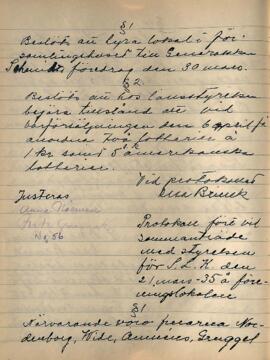 § 1
Beslöts att hyra lokal i för-
samlingshuset till Generalskan
föredrag den 30 mars.
§ 2
Beslöts att hos länsstyrelsen
begära tillstånd att vid
den 6 april få
anordna två lotterier à
1 kr samt 5 amerikanska
lotterier.
Vid protokollet
Elsa Brunck
Justeras
Anna
Protokoll fört vid
sammanträde
med styrelsen
för S.L.K. den
21 mars -35 å före-
ningslokalen
§ 1
Närvarande voro fruarna Nor-
denborg, Wide,